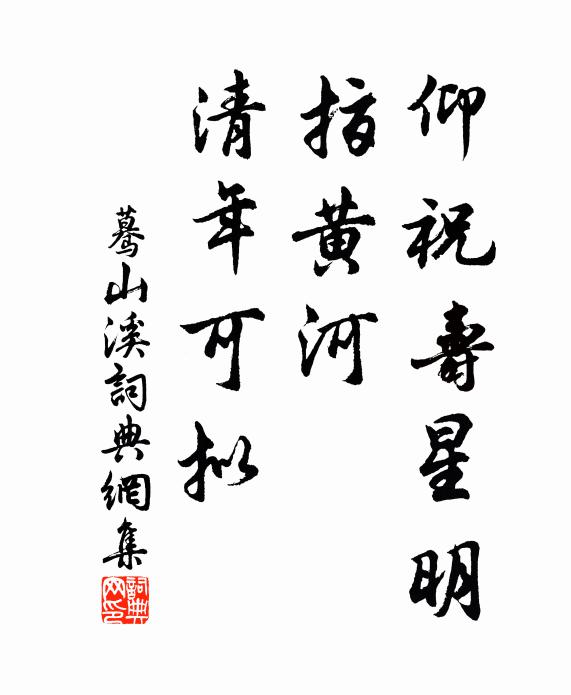 仰祝壽星明
指黃河
清年可擬
驀山溪詞典網集
詞典网印